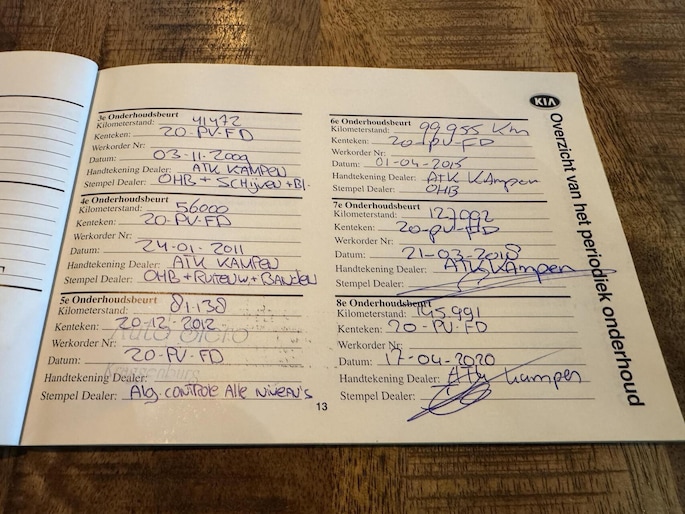 3e Onderhoudsbeurt
Kilometerstand: 41472
Kenteken: 20-PV-FD
Werkorder Nr:
Datum: 03-11-2009
Handtekening Dealer: ATK KAMPEN
Stempel Dealer: OHB + SCHIJVEN + Bl.
4e Onderhoudsbeurt
Kilometerstand: 56000
Kenteken: 20-PV-FD
Werkorder Nr:
Datum: 24-01-2011
Handtekening Dealer: ATK KAMPEN
Stempel Dealer: OHB + RUITENW + BANDEN
5e Onderhoudsbeurt
Kilometerstand: 81.138
Kenteken: 20-12-2012
Werkorder Nr:
Datum: 20-PV-FD
Handtekening Dealer:
Stempel Dealer: Alg. CONTROLE Alle NIVEAU'S
13
6e Onderhoudsbeurt
Kilometerstand: 99955 Km
Kenteken: 20-PV-FD
Werkorder Nr:
Datum: 01-04-2015
Handtekening Dealer: ATK KAmpen
Stempel Dealer: OHB
7e Onderhoudsbeurt
Kilometerstand: 127092
Kenteken: 20-PV-FD
Werkorder Nr:
Datum: 21-03-2018
Handtekening Dealer: ATK KAmpen
Stempel Dealer:
8e Onderhoudsbeurt
Kilometerstand: 145.991
Kenteken: 20-PV-FD
Werkorder Nr:
Datum: 17-04-2020
Handtekening Dealer: ATK Kampen
Stempel Dealer:
KIA
Overzicht van het periodiek onderhoud